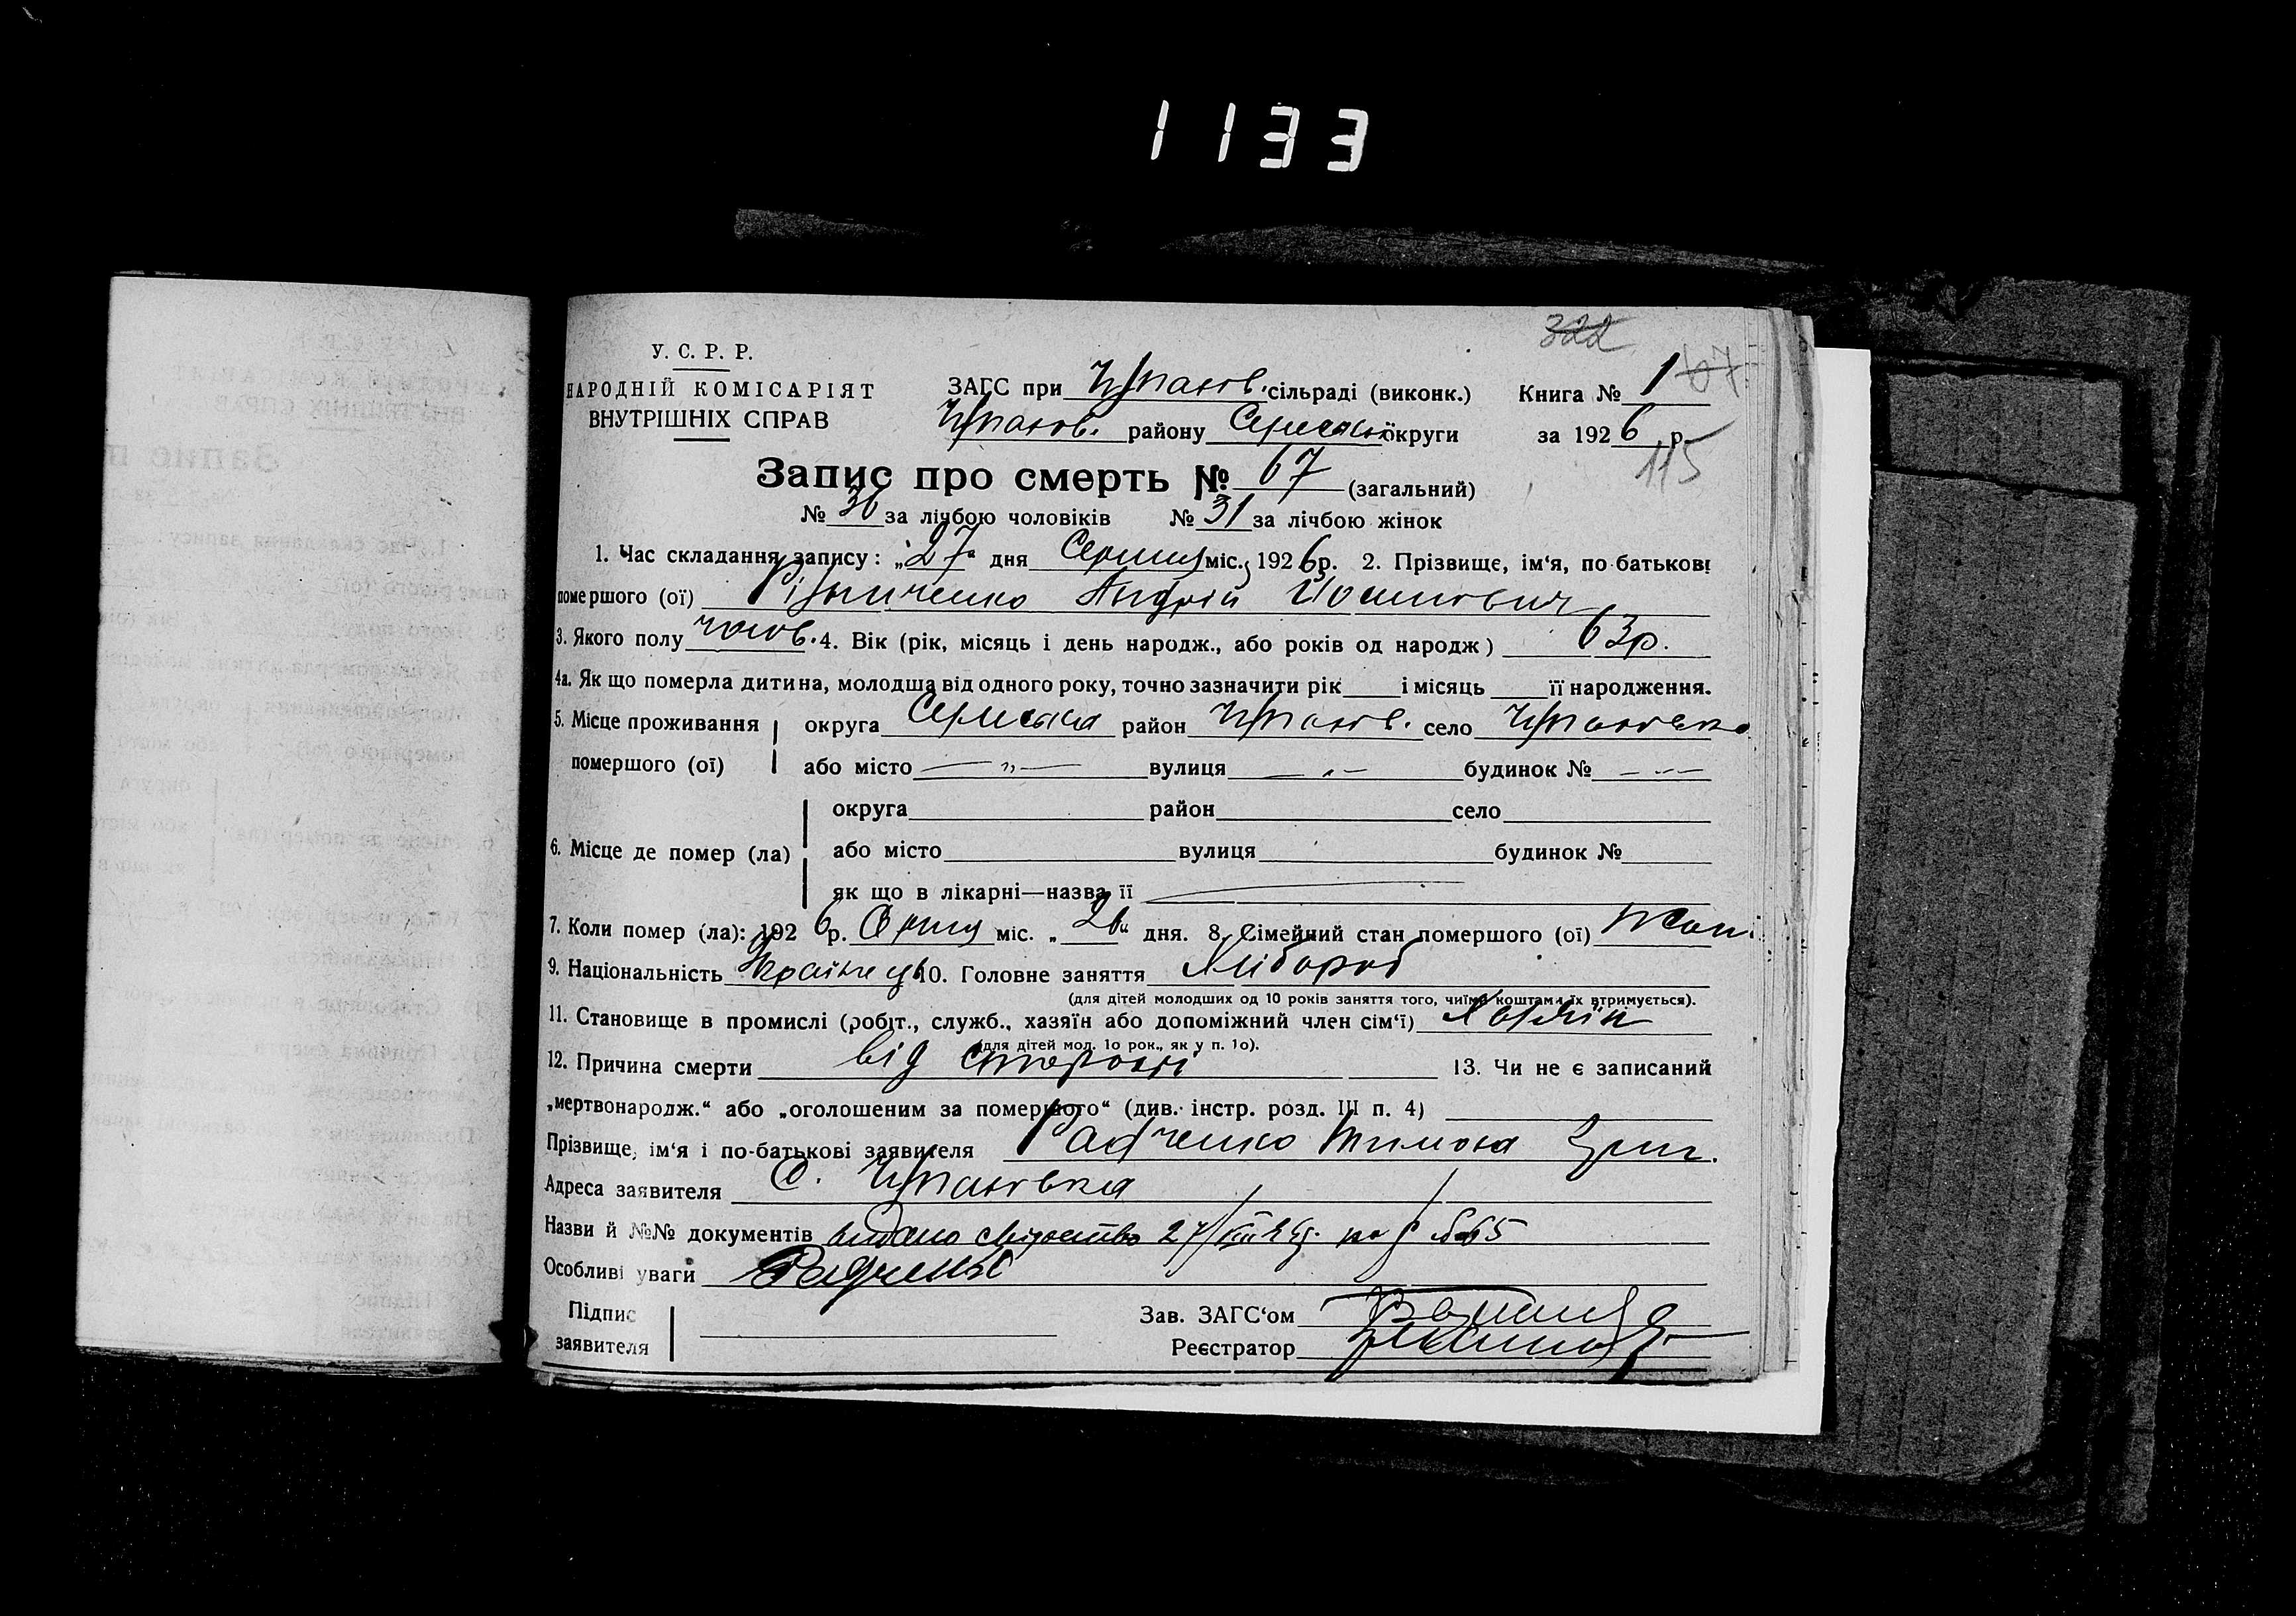 1133
322
У. С. Р. Р.
НАРОДНІЙ КОМІСАРІЯТ
ВНУТРІШНІХ СПРАВ
ЗАГС при сільраді (виконк.) Книга № 1 67
району округи за 1926 р.
115
Запис про смерть № 67 (загальний)
№ 36 за лічбою чоловіків № 31 за лічбою жінок
1. Час складання запису: „27“ дня Серпня міс. 1926 р. 2. Прізвище, ім‘я, по-батькові
помершого (ої) Андрій
3. Якого полу чолов. 4. Вік (рік, місяць і день народж., або років од народж) 63 р.
4а. Як що померла дитина, молодша від одного року, точно зазначити рік і місяць її народження.
5. Місце проживання округа район село
помершого (ої) або місто — „ — вулиця — „ — будинок № — „ —
округа район село
6. Місце де помер (ла) або місто вулиця будинок №
як що в лікарні—назва її
7. Коли помер (ла): 1926 р. Серпня міс. „26“ дня. 8. Сімейний стан помершого (ої)
9. Національність Українець 10. Головне заняття Хлібороб
(для дітей молодших од 10 років заняття того, чиїми коштами їх втримується).
11. Становище в промислі (робіт., служб., хазяїн або допоміжний член сім‘ї) Хазяїн
(для дітей мол. 10 рок., як у п. 10).
12. Причина смерти від старости 13. Чи не є записаний
„мертвонародж.“ або „оголошеним за помершого“ (див. інстр. розд. III п. 4)
Прізвище, ім‘я і по-батькові заявителя Радченко Тимоха Григ.
Адреса заявителя С.
Назви й №№ документів видано свідоцтво 27/VIII 26 р. № 65
Особливі уваги Радченко
Підпис
заявителя
Зав. ЗАГС‘ом
Реєстратор